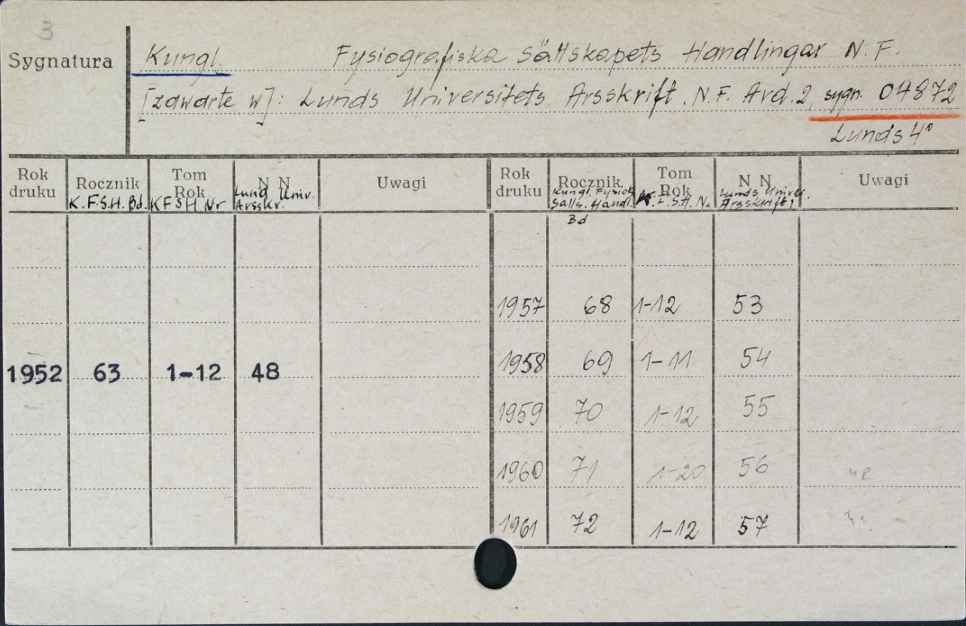 3
Sygnatura
Kungl. Fysiografiska Sällskapets Handlingar N.F.
[zawarte w]: Lunds Universitets Arsskrift. N.F. Avd. 2, sygn. 04872
Lunds 4°
Rok druku Rocznik Tom Rok N N Uwagi Rok druku Rocznik Tom Rok N N Uwagi
K.F.S.H. Bd. KFSH Nr Lund Univ. Arsskr. Kungl. Fysiogr. Salls. Handl. Bd K.F.S.H. N. Lunds Univer. Arsskrift
1957 68 1-12 53
1952 63 1-12 48 1958 69 1-11 54
1959 70 1-12 55
1960 71 1-20 56
1961 72 1-12 57